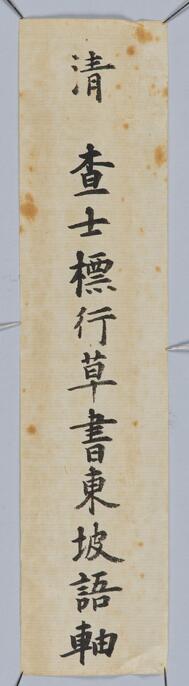 清 查士標行草書東坡語軸